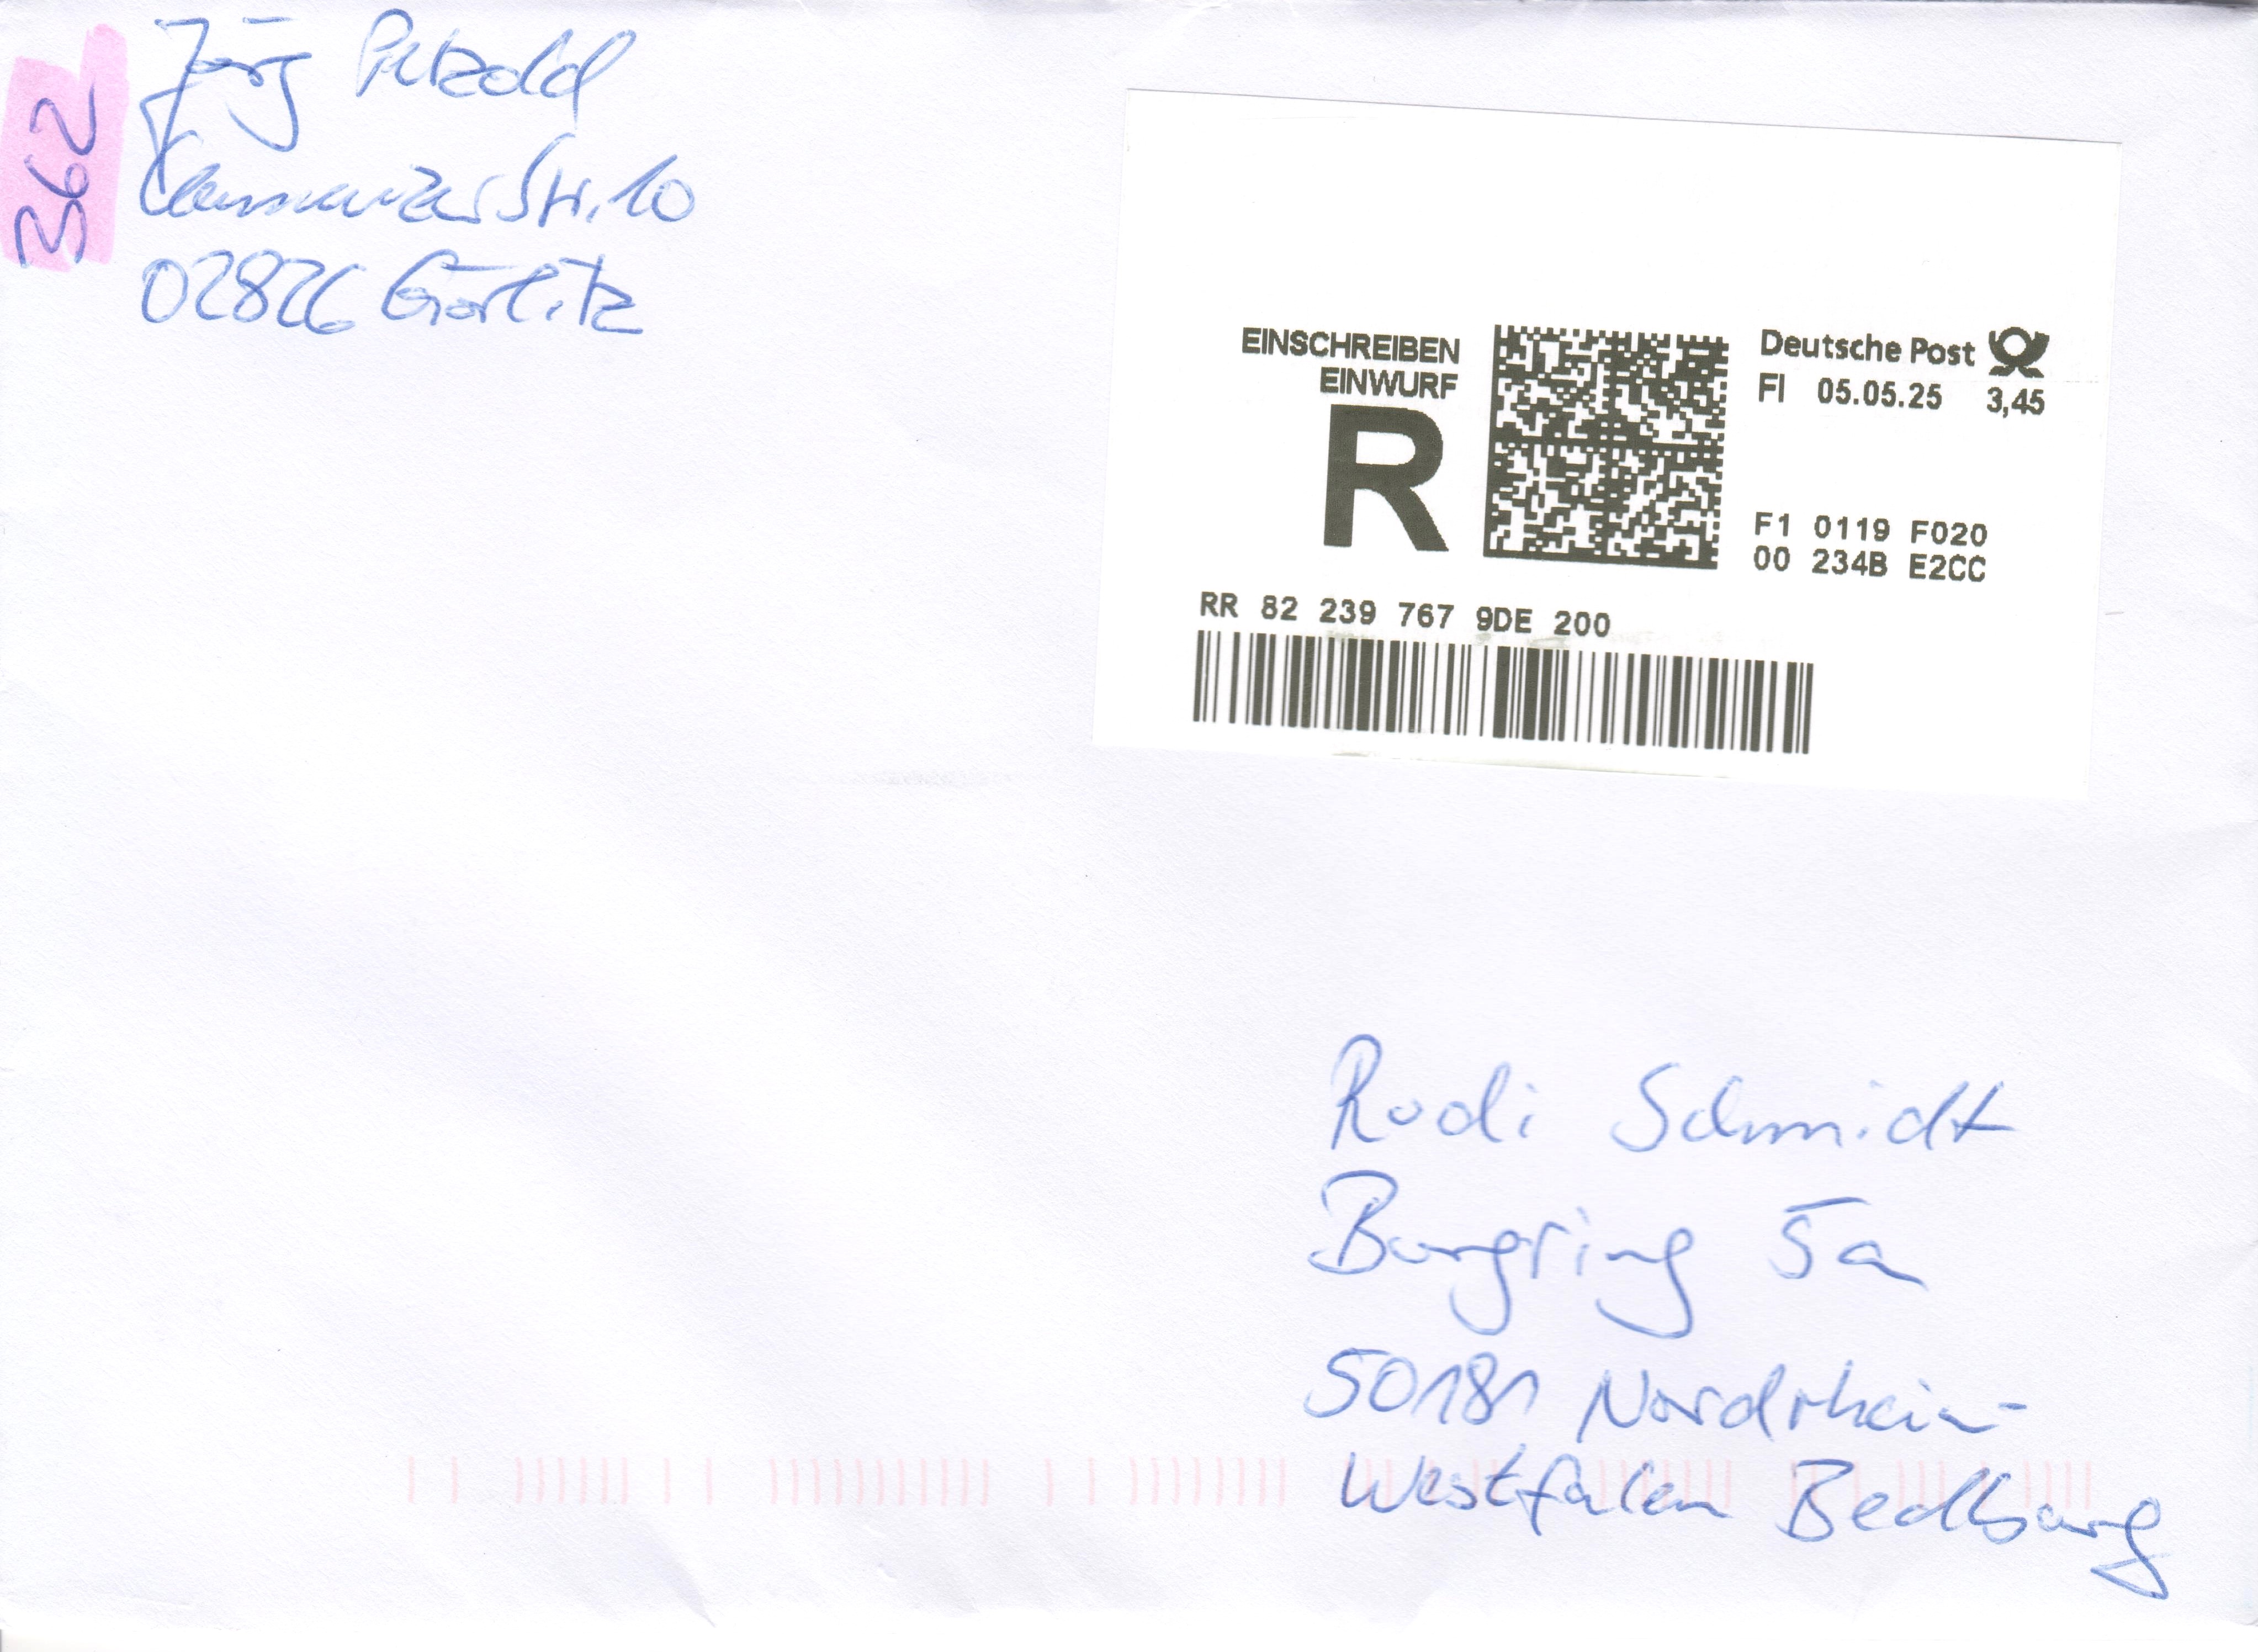 362
Jörg Petzold
Str. 10
02826 Görlitz
EINSCHREIBEN
EINWURF
R
Deutsche Post
FI 05.05.25 3,45
F1 0119 F020
00 234B E2CC
RR 82 239 767 9DE 200
Rudi Schmidt
Burgring 5a
50181 Nordrhein-
Westfalen Bedburg